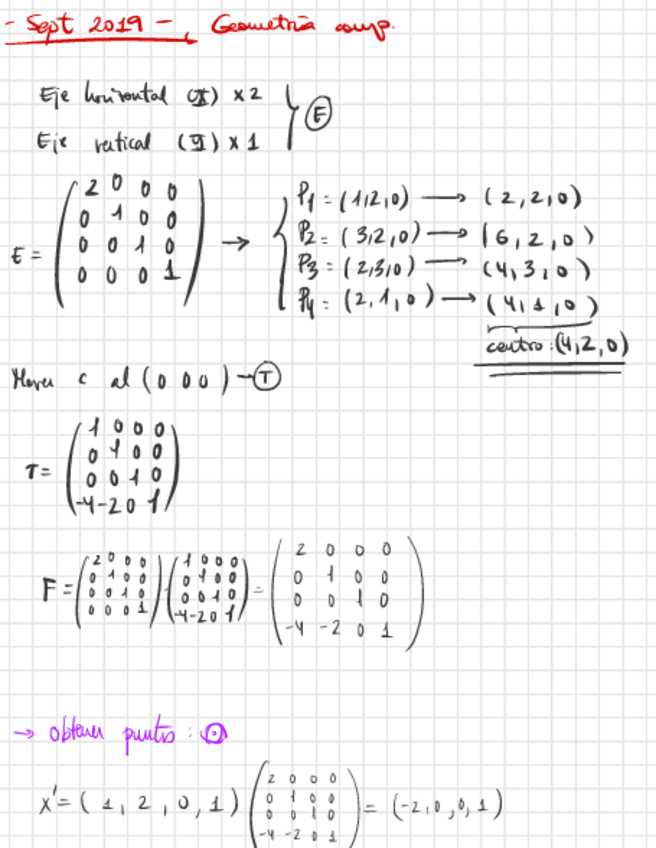 - Sept 2019 -, Geometría comp.
Eje horizontal (x) x2
Eje vertical (y) x1
E
E = ( 2 0 0 0
0 1 0 0
0 0 1 0
0 0 0 1 ) →
P1 = (1,2,0) → (2,2,0)
P2 = (3,2,0) → (6,2,0)
P3 = (2,3,0) → (4,3,0)
P4 = (2,1,0) → (4,1,0)
centro: (4,2,0)
Mover c al (0 0 0) → T
T = ( 1 0 0 0
0 1 0 0
0 0 1 0
-4 -2 0 1 )
F = ( 2 0 0 0
0 1 0 0
0 0 1 0
0 0 0 1 ) · ( 1 0 0 0
0 1 0 0
0 0 1 0
-4 -2 0 1 ) = ( 2 0 0 0
0 1 0 0
0 0 1 0
-4 -2 0 1 )
→ obtener puntos:
x' = (1, 2, 0, 1) ( 2 0 0 0
0 1 0 0
0 0 1 0
-4 -2 0 1 ) = (-2,0,0,1)